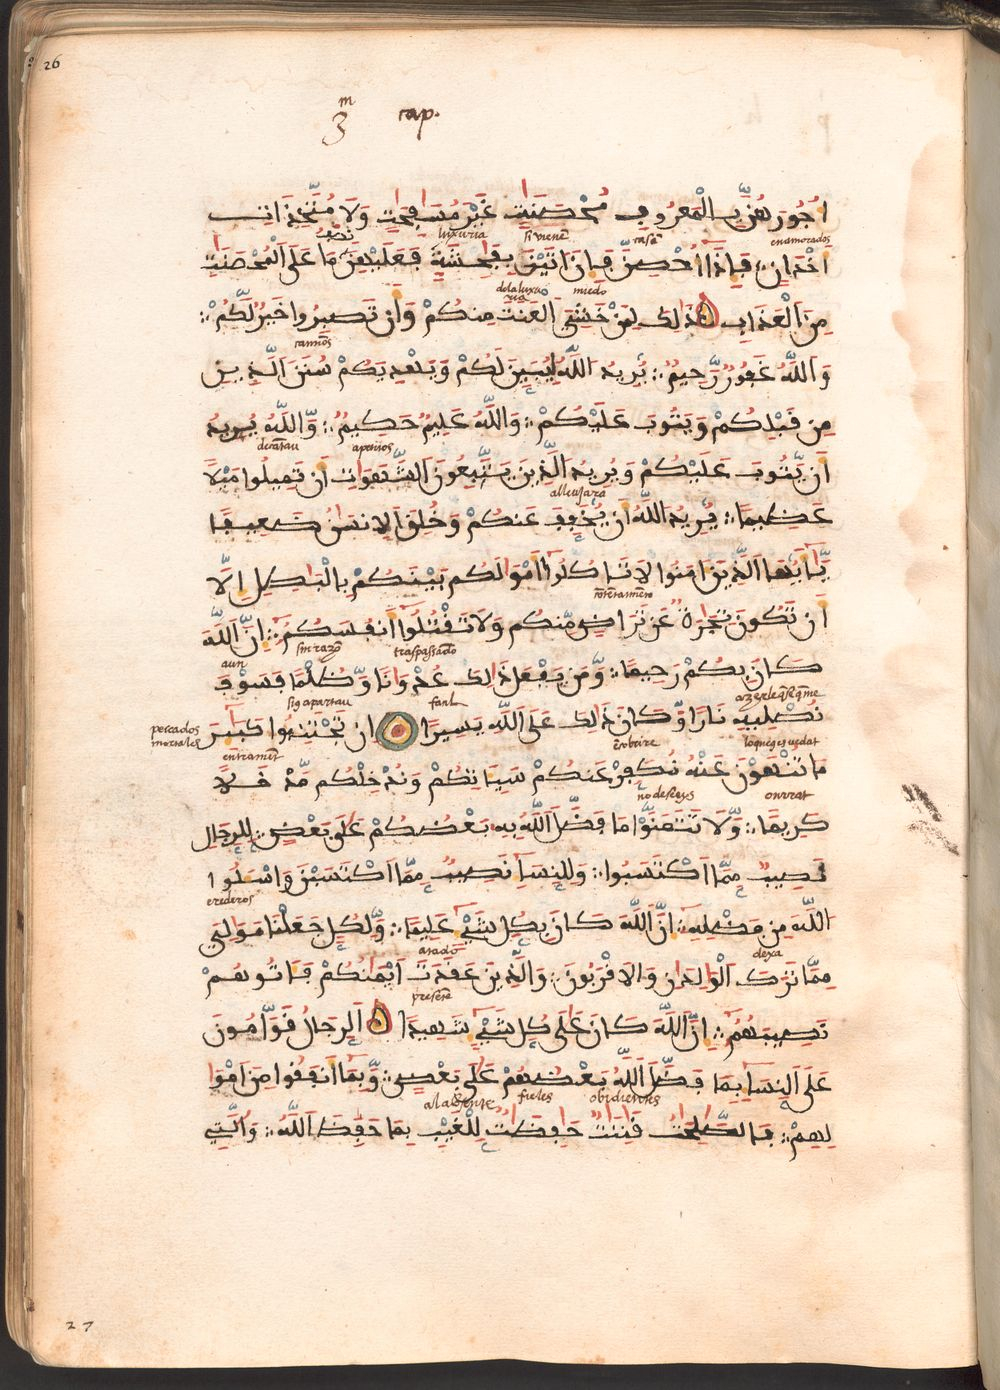 26
3 m cap.
اجورهن بالمعروف محصنت غير مسفحت ولا متخذات
luxuria si vienē casā enamorados
اخدان فاذا احصن فان اتين بفحشة فعليهن نصف ما على المحصنت
dela luxuria miedo
من العذاب ذلك لمن خشي العنت منكم وان تصبروا خير لكم
camīos
والله غفور رحيم يريد الله ليبين لكم ويهديكم سنن الذين
من قبلكم ويتوب عليكم والله عليم حكيم والله يريد
apetitos
ان يتوب عليكم ويريد الذين يتبعون الشهوات ان تميلوا ميلا
عظيما يريد الله ان يخفف عنكم وخلق الانسن ضعيفا
يايها الذين امنوا لا تاكلوا اموالكم بينكم بالبطل الا
ان تكون تجرة عن تراض منكم ولا تقتلوا انفسكم ان الله
aun sin razō traspassādo
كان بكم رحيما ومن يفعل ذلك عدونا وظلما فسوف
si os apartau facil
نصليه نارا وكان ذلك على الله يسيرا ان تجتنبوا كبير
pecados mortales
ēcobrire
ما تنهون عنه نكفر عنكم سياتكم وندخلكم مدخلا
no deseeys onrrat
كريما ولا تتمنوا ما فضل الله به بعضكم على بعض للرجال
نصيب مما اكتسبوا وللنسا نصيب مما اكتسبن واسلوا
erederos
الله من فضله ان الله كان بكل شي عليما ولكل جعلنا مولي
atado dexa
مما ترك الولدن والاقربون والذين عقدت ايمنكم فاتوهم
presente
نصيبهم ان الله كان على كل شي شهيدا الرجال قومون
على النسا بما فضل الله بعضهم على بعض وبما انفقوا من امو
al absente fieles obidientes
لهم فالصلحت قنتت حفظت للغيب بما حفظ الله والتي
27